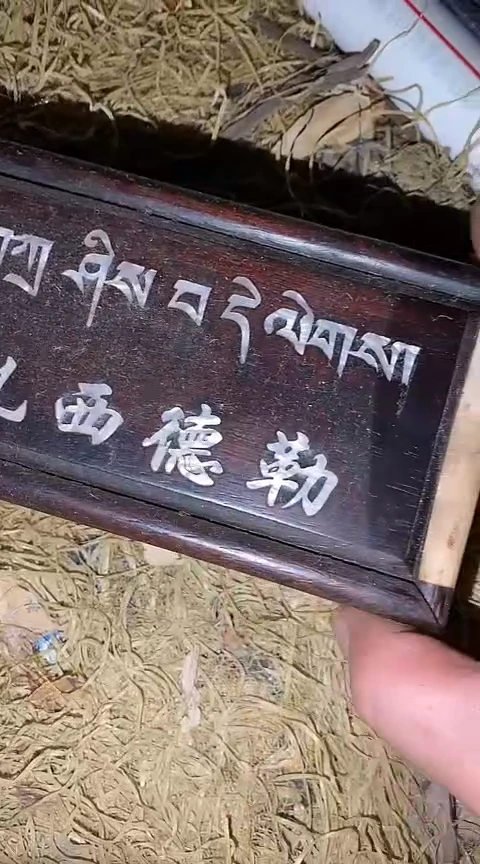 ཤིས བདེ ལེགས
西德勒